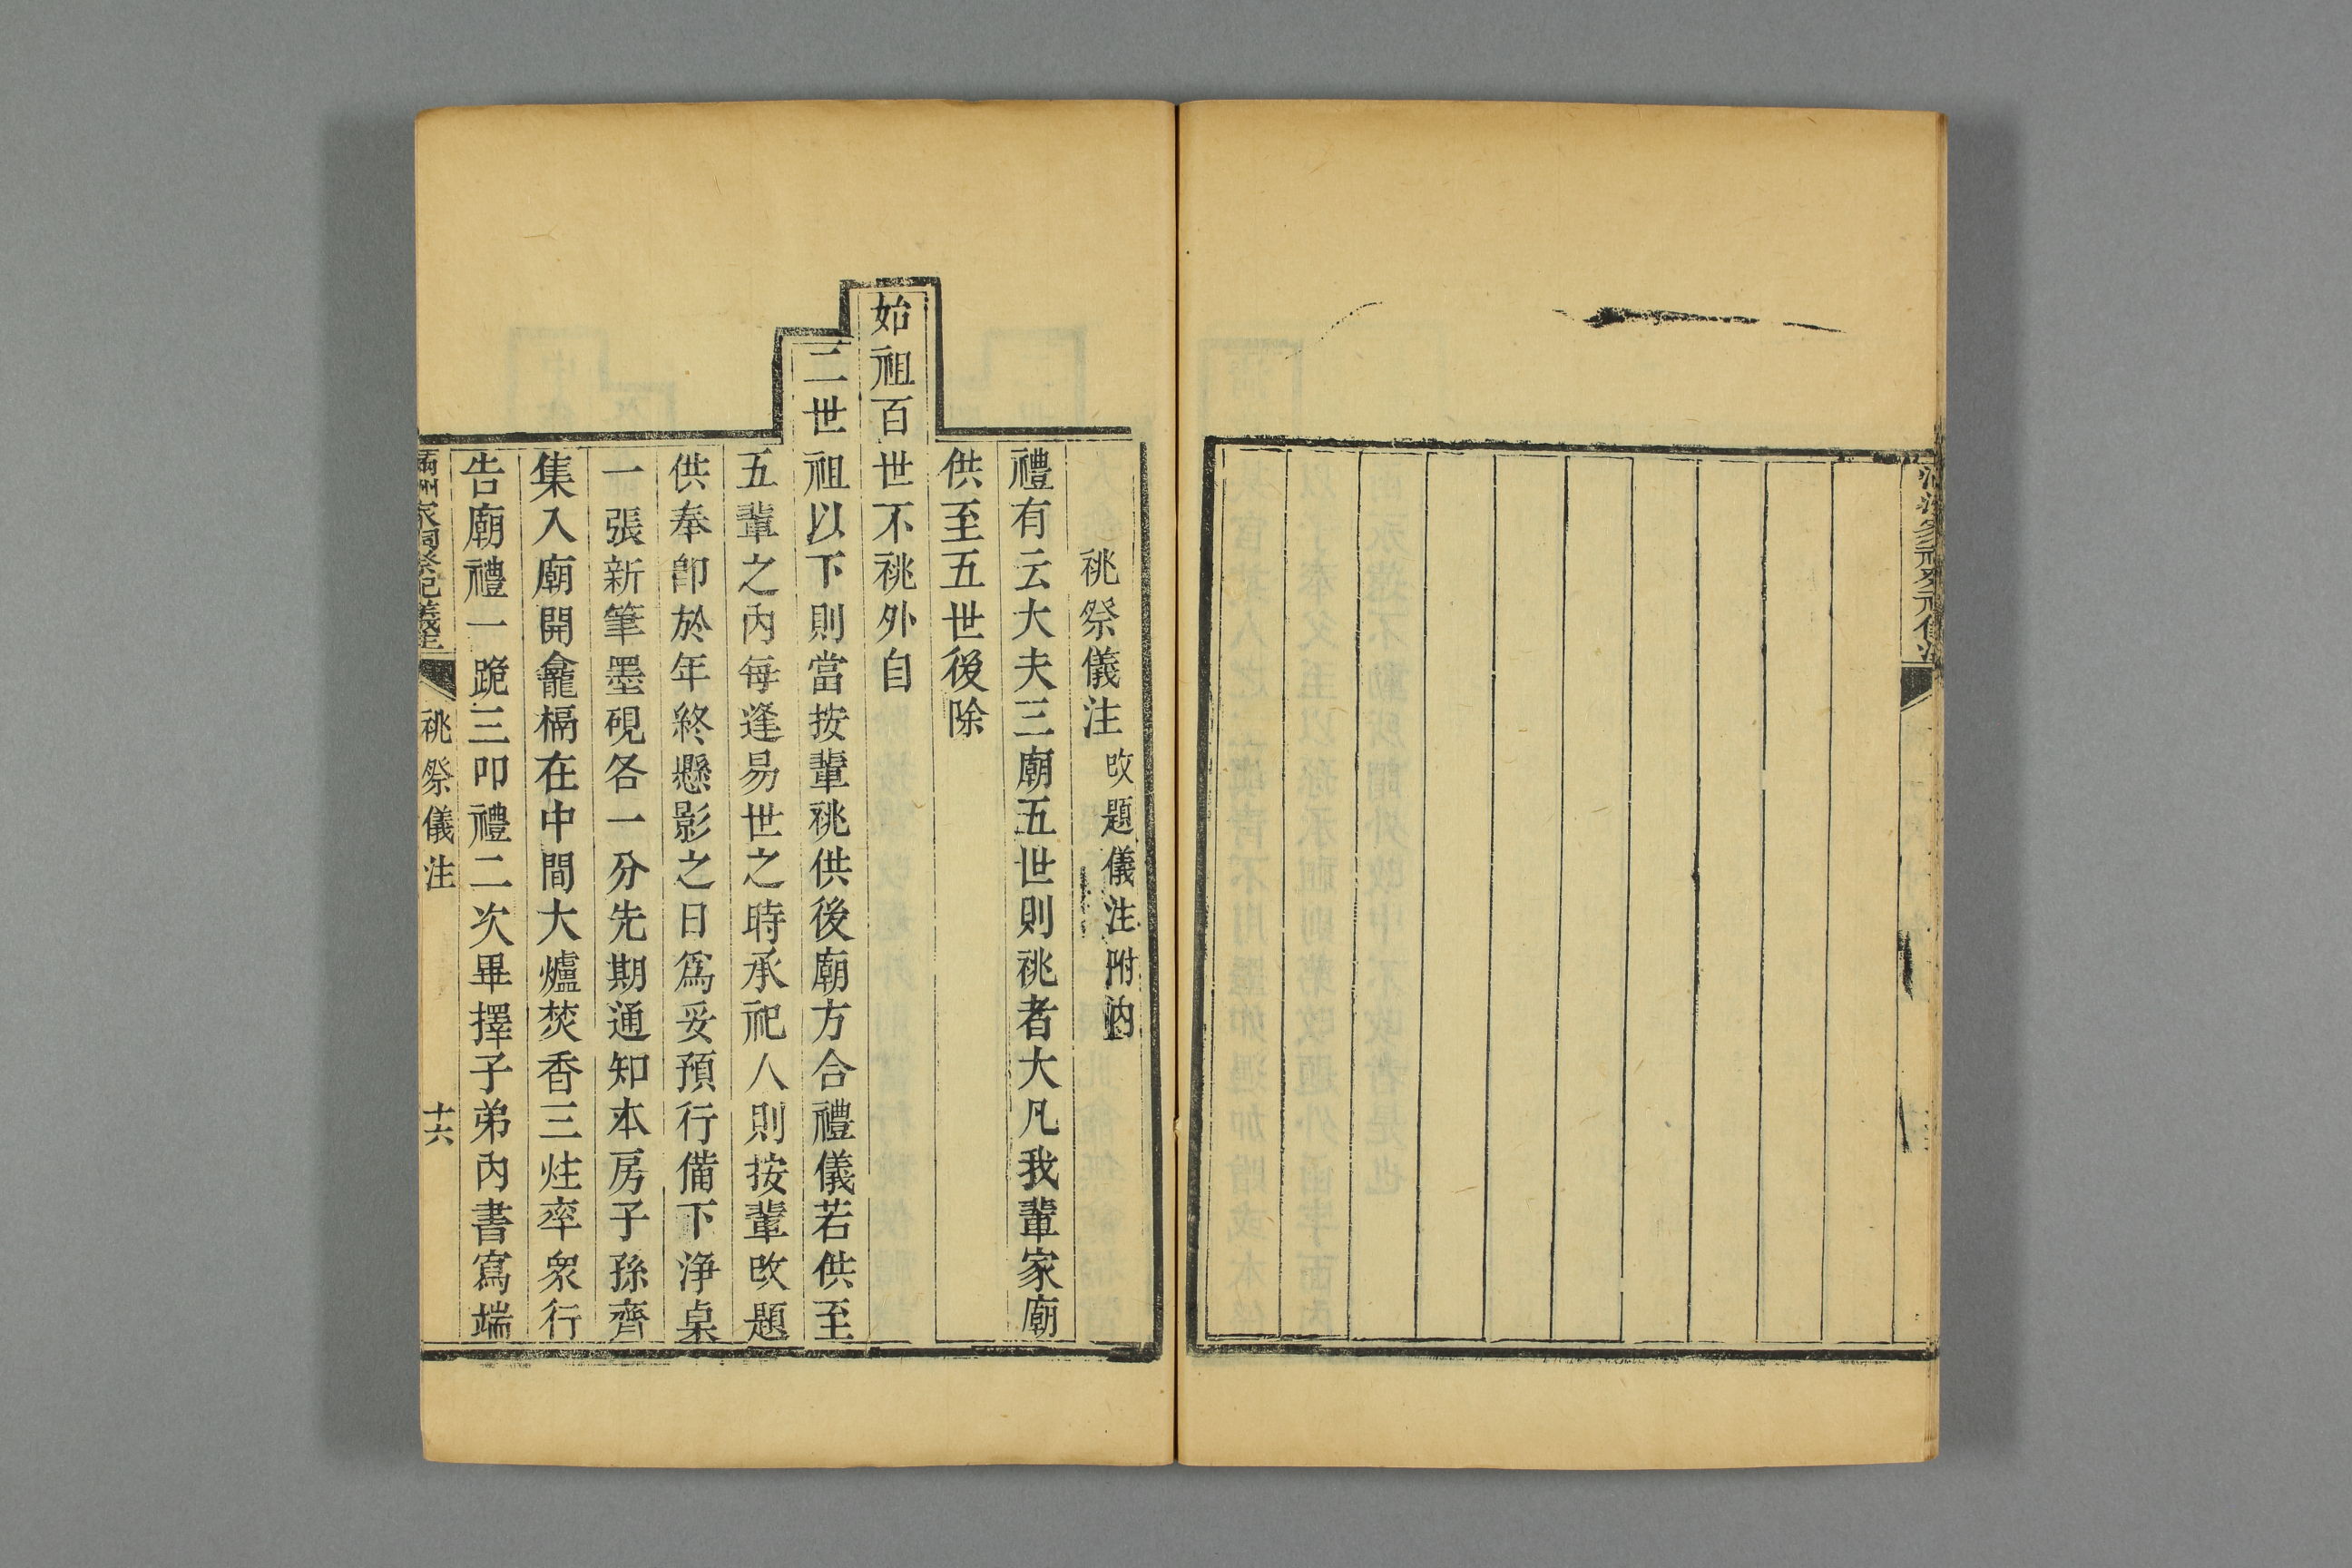 祧祭儀注 改題儀注附內
禮有云大夫三廟五世則祧者大凡我輩家廟
供至五世後除
始祖百世不祧外自
二世祖以下則當按輩祧供後廟方合禮儀若供至
五輩之內每逢易世之時承祀人則按輩改題
供奉卽於年終懸影之日爲妥預行備下淨桌
一張新筆墨硯各一分先期通知本房子孫齊
集入廟開龕槅在中間大爐焚香三炷率衆行
告廟禮一跪三叩禮二次畢擇子弟內書寫端
祧祭儀注
十六